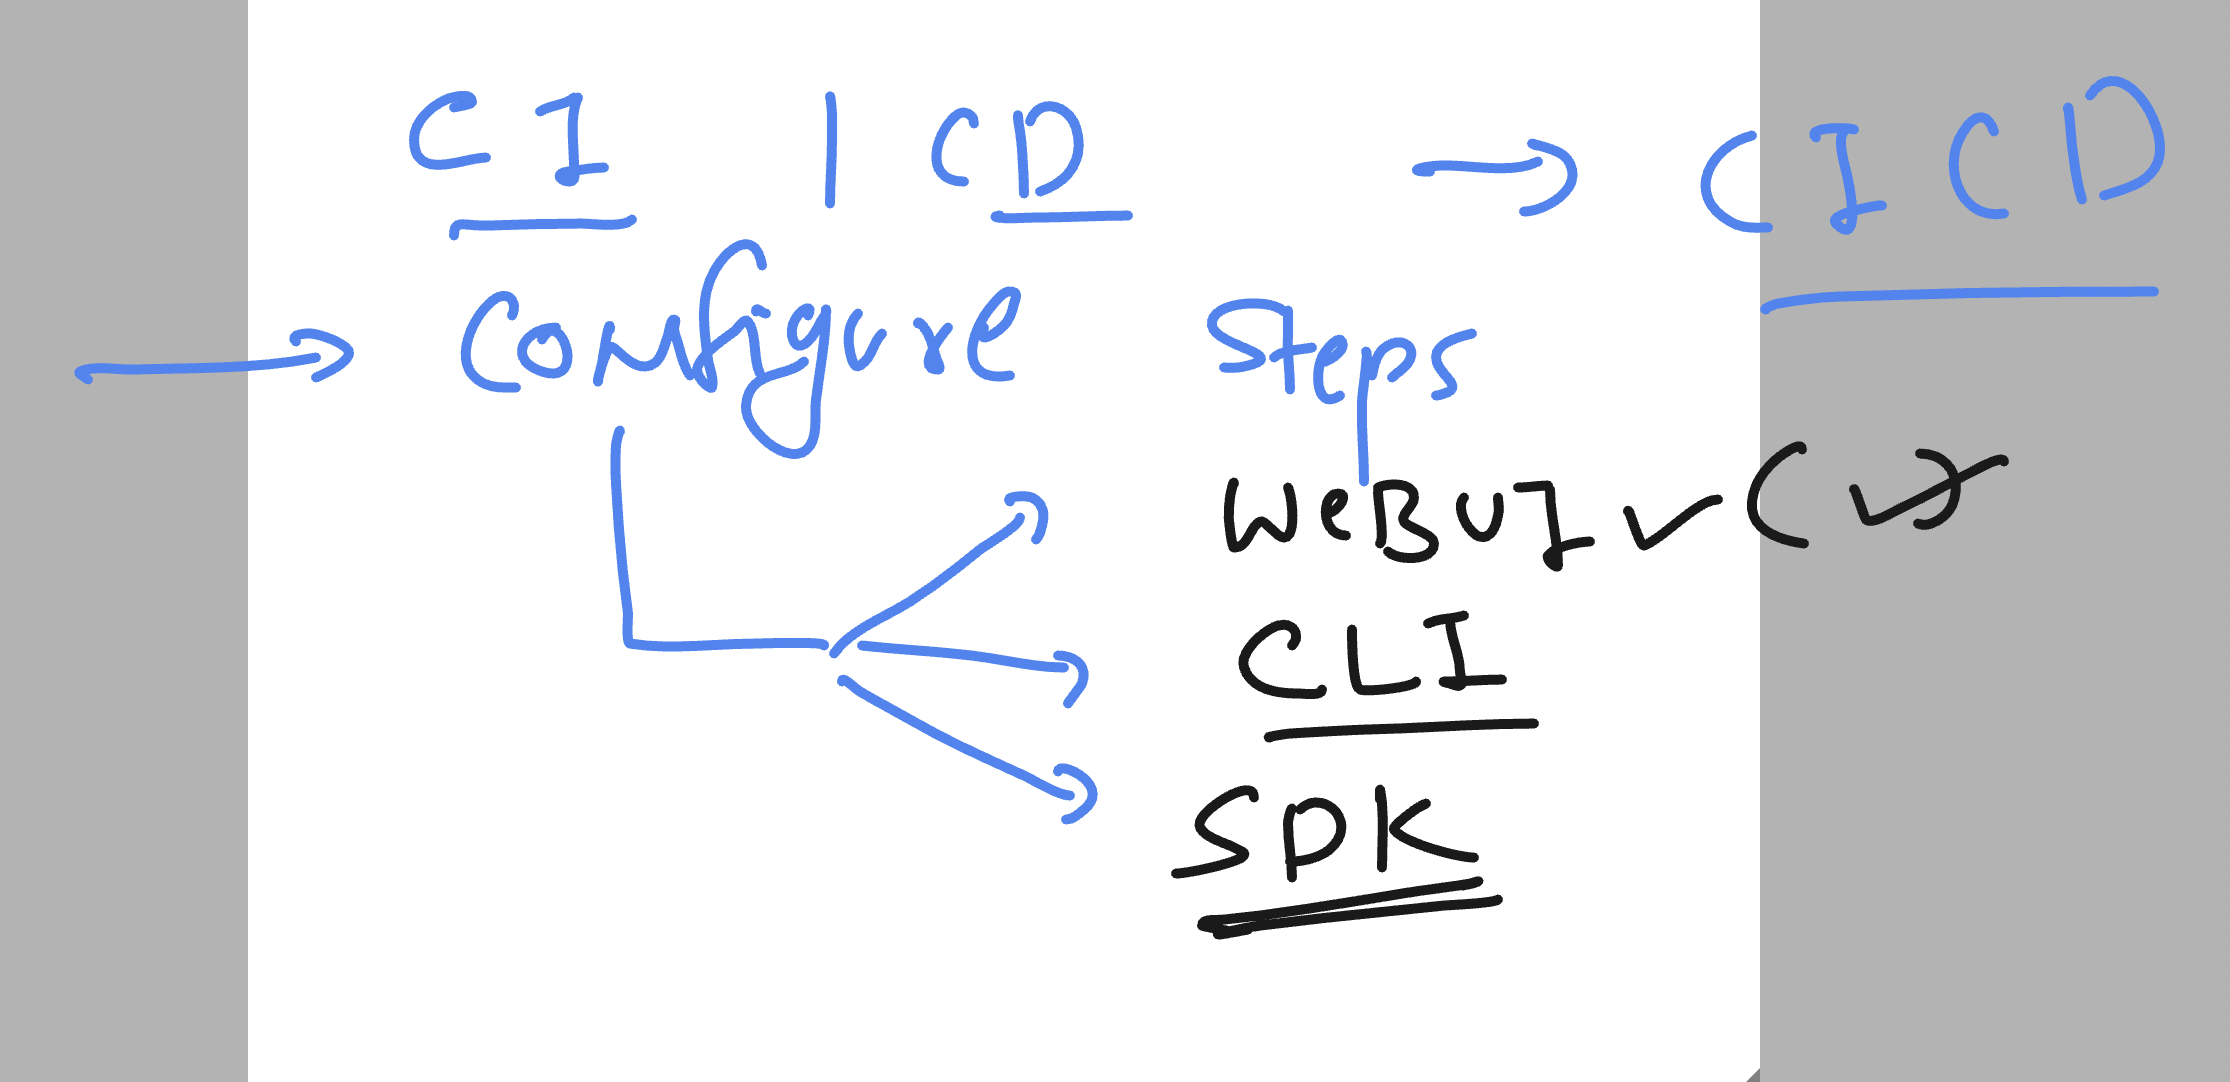 CI | CD → CICD
→ Configure Steps
WeBUI ✓ (✓)
CLI
SDK